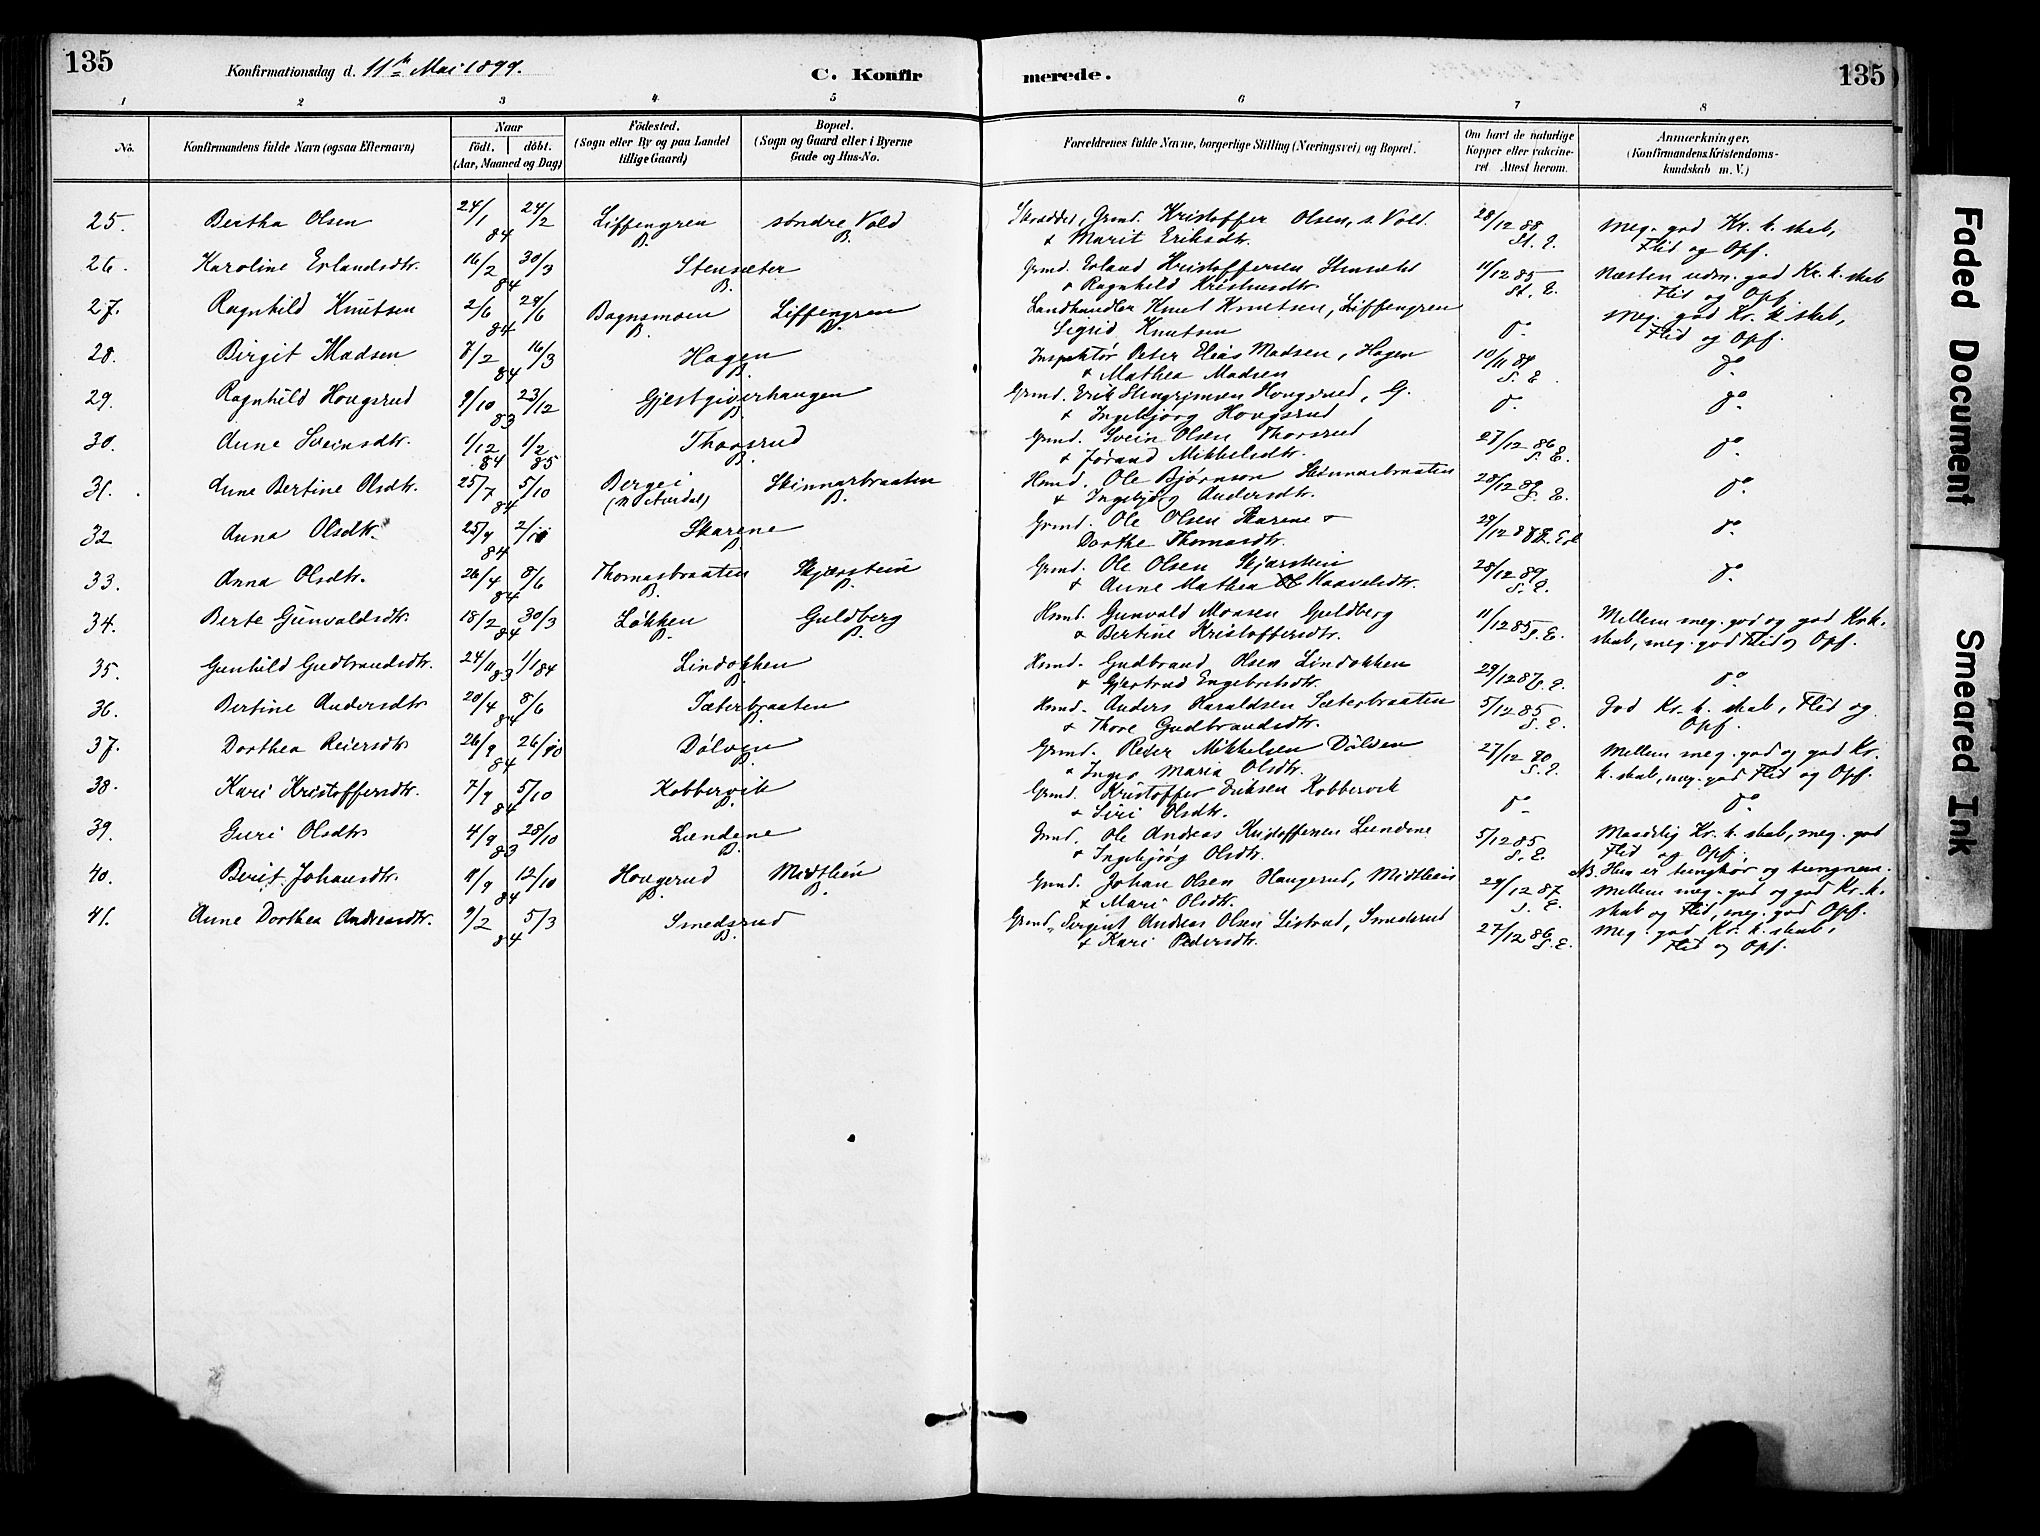 135
Konfirmationsdag d. 11te Mai 1899.
C. Konfirmerede.
135
1 2 3 4 5 6 7 8
No.
Konfirmandens fulde Navn (ogsaa Efternavn)
Naar født. døbt. (Aar, Maaned og Dag)
Fødested. (Sogn eller By og paa Landet tillige Gaard)
Bopæl. (Sogn og Gaard eller i Byerne Gade og Hus-No.
Forældrenes fulde Navne, borgerlige Stilling (Næringsvei) og Bopæl.
Om havt de naturlige Kopper eller vakcineret Attest herom.
Anmærkninger. (Konfirmandens Kristendomskundskab m. V.)
25. Bertha Olsen 24/1 84 24/2 Liffengren B. søndre Vold B. Skrædder, Grmd. Kristoffer Olsen, s. Vold. & Marit Eriksdtr. 28/12 88 St. E. Meg. god Kr. k. skab, Flid og Opf.
26. Karoline Erlandsdtr. 16/2 84 30/3 Stensæter B. Grmd. Erland Kristoffersen Stensæter & Ragnhild Kristensdtr 11/12 85 St. E. Næsten udm. god Kr. k. skab Flid og Opf.
27. Ragnhild Knutsen 2/6 84 29/6 Bagnsmoen B. Liffengren B. Landhandler Knut Knutsen, Liffengren Sigrid Knutsen do. Meg. god Kr. k. skab, Flid og Opf.
28. Birgit Madsen 7/2 84 16/3 Hagen B. Inspektør Peter Elias Madsen, Hagen & Mathea Madsen 10/11 84 S. E. do.
29. Ragnhild Hougsrud 9/10 83 23/12 Gjestgiverhaugen B. Grmd. Erik Stengrimsen Hougsrud, G. & Ingebjørg Hougsrud do. do.
30. Anne Sveinsdtr. 1/12 84 1/2 85 Thorsrud B. Grmd. Svein Olsen Thorsrud & Jørand Mikkelsdtr. 27/12 86 S. E. do.
31. Anne Bertine Olsdtr. 25/7 84 5/10 Berge i (N. Aurdal) Skinnarbraaten B. Hsmd. Ole Bjørnson Skinnarbraaten & Ingebjørg Andersdtr. 28/12 89 S. E. do.
32 Anna Olsdtr. 25/9 84 2/10 Skarene B. Grmd. Ole Olsen Skarene & Dorthe Thomasdtr. 29/12 87 do.
33. Anna Olsdtr. 26/4 84 8/6 Thomasbraaten B. Skjærstein B. Grmd. Ole Olsen Skjærstein & Anne Mathea Haavelsdtr. 28/12 89 S. E. do.
34. Berte Gunvaldsdtr. 18/2 84 30/3 Løkken B. Guldberg B. Hsmd. Gunvald Monsen Guldberg & Bertine Kristoffersdtr. 11/12 85 S. E. Mellem meg. god og god Kr. k. skab, meg. god Flid og Opf.
35. Gunhild Gudbrandsdtr. 24/11 83 1/1 84 Lindokken B. Hsmd. Gudbrand Olsen Lindokken & Gjertrud Engebretsdtr. 29/12 87 S. E. do.
36. Bertine Andersdtr 20/4 84 8/6 Sæterbraaten B. Hsmd. Anders Haraldsen Sæterbraaten & Thore Gudbrandsdtr. 5/12 85 S. E. God Kr. k. skab, Flid og Opf.
37. Dorthea Reiersdtr 26/9 84 26/10 Dølven B. Grmd. Reier Mikkelsen Dølven & Inger Maria Olsdtr. 27/12 90 S. E. Mellem meg. god og god Kr. k. skab, meg. god Flid og Opf.
38. Kari Kristoffersdtr. 7/9 84 5/10 Kobbervik B. Grmd. Kristoffer Eriksen Kobbervik & Siri Olsdtr. do. do.
39. Guri Olsdtr 4/9 83 28/10 Lundene B. Grmd. Ole Andreas Kristoffersen Lundene & Ingebjørg Olsdtr. 5/12 85 S. E. Maadelig Kr. k. skab, meg. god Flid og Opf.
40. Berit Johansdtr. 11/9 84 12/10 Hougerud B. Midtlien B. Grmd. Johan Olsen Haugerud, Midtlien & Mari Olsdtr. 29/12 87 S. E. NB. Hun er tunghør og tungnem. Mellem meg. god og god Kr. k. skab og Flid, meg. god Opf.
41. Anne Dorthea Andreasdtr. 9/2 84 5/3 Smedsrud B. Grmd. Sergeant Andreas Olsen Listrud, Smedsrud & Kari Pedersdtr. 27/12 86 S. E. Meg. god Kr. k. skab, Flid og Opf.
Faded Document
Smeared Ink